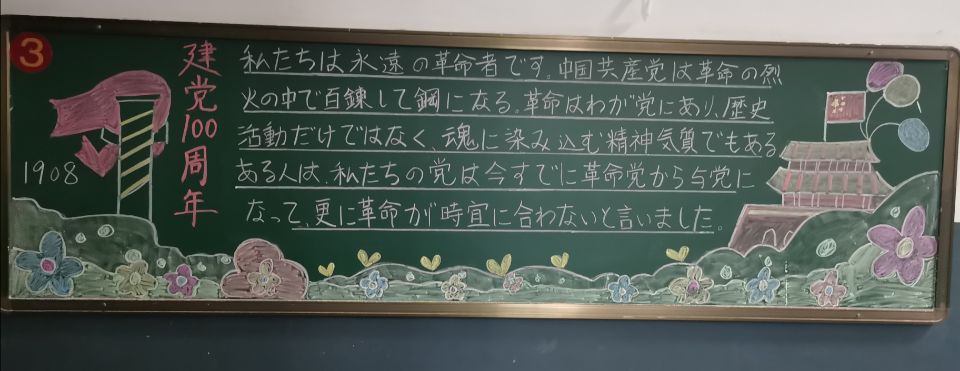 3
1908
建党100周年
私たちは永遠の革命者です。中国共産党は革命の烈
火の中で百錬して鋼になる。革命はわが党にあり、歴史
活動だけではなく、魂に染み込む精神気質でもある
ある人は、私たちの党は今すでに革命党から与党に
なって、更に革命が時宜に合わないと言いました。